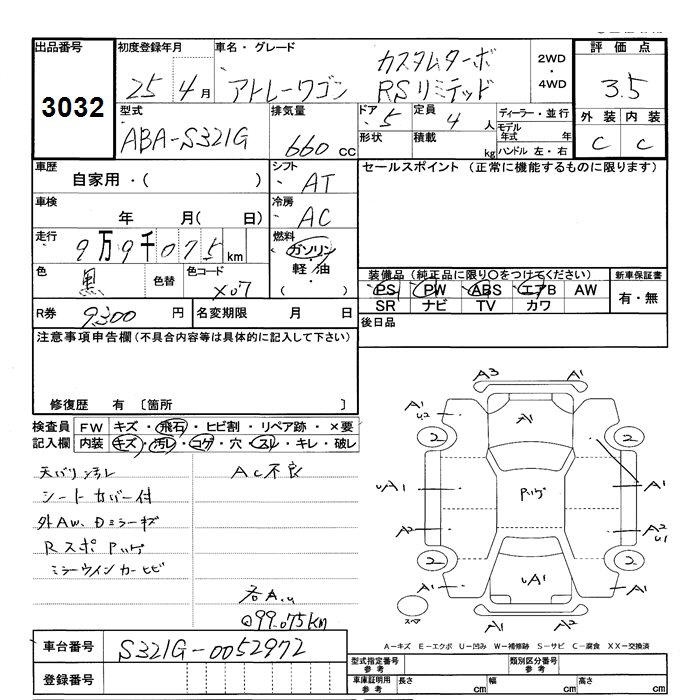 出品番号
3032
初度登録年月
25年4月
車名・グレード
アトレーワゴン
カスタムターボ
RSリミテッド
2WD
・
4WD
評価点
3.5
外装 内装
C C
型式
ABA-S321G
排気量
660cc
ドア
5
形状
定員
4人
積載
kg
ディーラー・並行
モデル年式 年
ハンドル 左・右
車歴
自家用・( )
シフト
AT
セールスポイント (正常に機能するものに限ります)
車検
年 月( 日)
冷房
AC
走行
9万9千075km
燃料
ガソリン
軽油
・
( )
色
黒
色替
色コード
X07
装備品(純正品に限り〇をつけてください)
PS PW ABS エアB AW
SR ナビ TV カワ
新車保証書
有・無
R券 9300円
名変期限 月 日
後日品
注意事項申告欄(不具合内容等は具体的に記入して下さい)
修復歴 有 〔箇所 〕
検査員記入欄
FW キズ・飛石・ヒビ割・リペア跡・×要
内装 キズ・汚レ・コゲ・穴・スレ・キレ・破レ
天バリ汚レ
シートカバー付
外AW、Dミラーキズ
Rスポ Pハゲ
ミラーウインカーヒビ
AC不良
各A.u
@99.075km
A3
A1
A1
U2
A1
A1
2
2
uA1
Pハゲ
A1
A2
A2
u1
2
2
A1
uA1
A1
スペア
A1
A1
A-キズ E-エクボ U-凹み W-補修跡 S-サビ C-腐食 XX-交換済
車台番号
S321G-0052972
登録番号
型式指定番号
参考
類別区分番号
参考
車庫証明用
参考
長さ cm
幅 cm
高さ cm